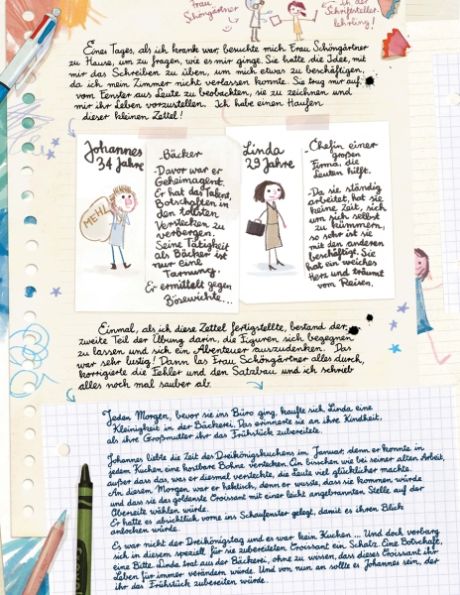 Frau
Schöngärtner
ich der
Schriftsteller-
lehrling!
Eines Tages, als ich krank war, besuchte mich Frau Schöngärtner
zu Hause, um zu fragen, wie es mir ginge. Sie hatte die Idee, mit
mir das Schreiben zu üben, um mich etwas zu beschäftigen,
da ich mein Zimmer nicht verlassen konnte. Sie trug mir auf,
vom Fenster aus Leute zu beobachten, sie zu zeichnen und
mir ihr Leben vorzustellen. Ich habe einen Haufen
dieser kleinen Zettel!
Johannes
34 Jahre
MEHL
. Bäcker
. Davor war er
Geheimagent.
Er hat das Talent,
Botschaften in
den tollsten
Verstecken zu
verbergen.
Seine Tätigkeit
als Bäcker ist
nur eine
Tarnung.
Er ermittelt gegen
Bösewichte...
Linda
29 Jahre
. Chefin einer
großen
Firma, die
Leuten hilft.
. Da sie ständig
arbeitet, hat sie
keine Zeit, sich
um sich selbst
zu kümmern,
so sehr ist sie
mit den anderen
beschäftigt. Sie
hat ein weiches
Herz und träumt
vom Reisen.
Einmal, als ich diese Zettel fertigstellte, bestand der
zweite Teil der Übung darin, die Figuren sich begegnen
zu lassen und sich ein Abenteuer auszudenken. Das
war sehr lustig! Dann las Frau Schöngärtner alles durch,
korrigierte die Fehler und den Satzbau und ich schrieb
alles noch mal sauber ab.
Jeden Morgen, bevor sie ins Büro ging, kaufte sich Linda eine
Kleinigkeit in der Bäckerei. Das erinnerte sie an ihre Kindheit,
als ihre Großmutter ihr das Frühstück zubereitete.
Johannes liebte die Zeit des Dreikönigskuchens im Januar, denn er konnte in
jedem Kuchen eine kostbare Bohne verstecken. Ein bisschen wie bei seiner alten Arbeit,
außer dass das, was er diesmal versteckte, die Leute viel glücklicher machte.
An diesem Morgen war er hektisch, denn er wusste, dass sie kommen würde
und dass sie das goldenste Croissant mit einer leicht angebrannten Stelle auf der
Oberseite wählen würde.
Er hatte es absichtlich vorne ins Schaufenster gelegt, damit es ihren Blick
anlocken würde.
Es war nicht der Dreikönigstag und es war kein Kuchen... Und doch verbarg
sich in diesem speziell für sie zubereiteten Croissant ein Schatz. Eine Botschaft,
eine Bitte. Linda trat aus der Bäckerei, ohne zu wissen, dass dieses Croissant ihr
Leben für immer verändern würde. Und von nun an sollte es Johannes sein, der
ihr das Frühstück zubereiten würde.